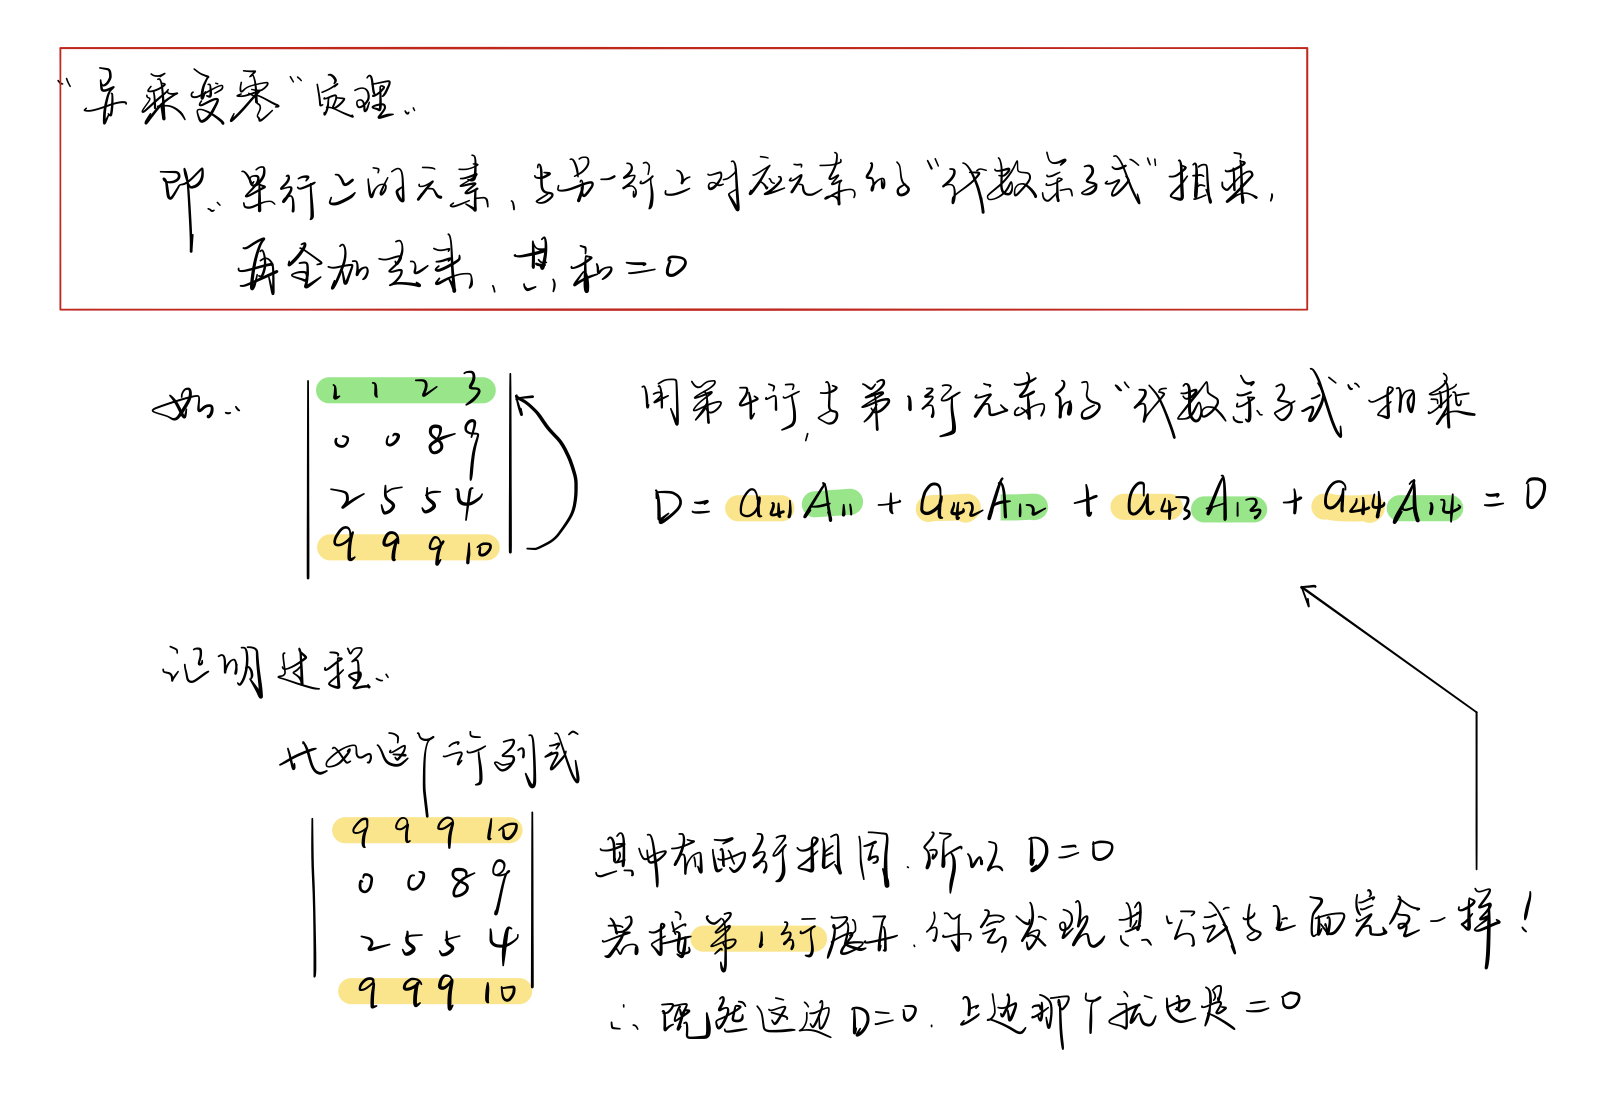 "异乘变零"定理:
即: 某行上的元素, 与另一行上对应元素的"代数余子式"相乘,
再全加起来, 其和=0
如:
1 1 2 3
0 0 8 9
2 5 5 4
9 9 9 10
用第4行, 与第1行元素的"代数余子式"相乘
D = a41A11 + a42A12 + a43A13 + a44A14 = 0
证明过程:
比如这个行列式
9 9 9 10
0 0 8 9
2 5 5 4
9 9 9 10
其中有两行相同. 所以 D=0
若按第1行展开. 你会发现其公式与上面完全一样!
∴ 既然这边D=0. 上边那个就也是=0